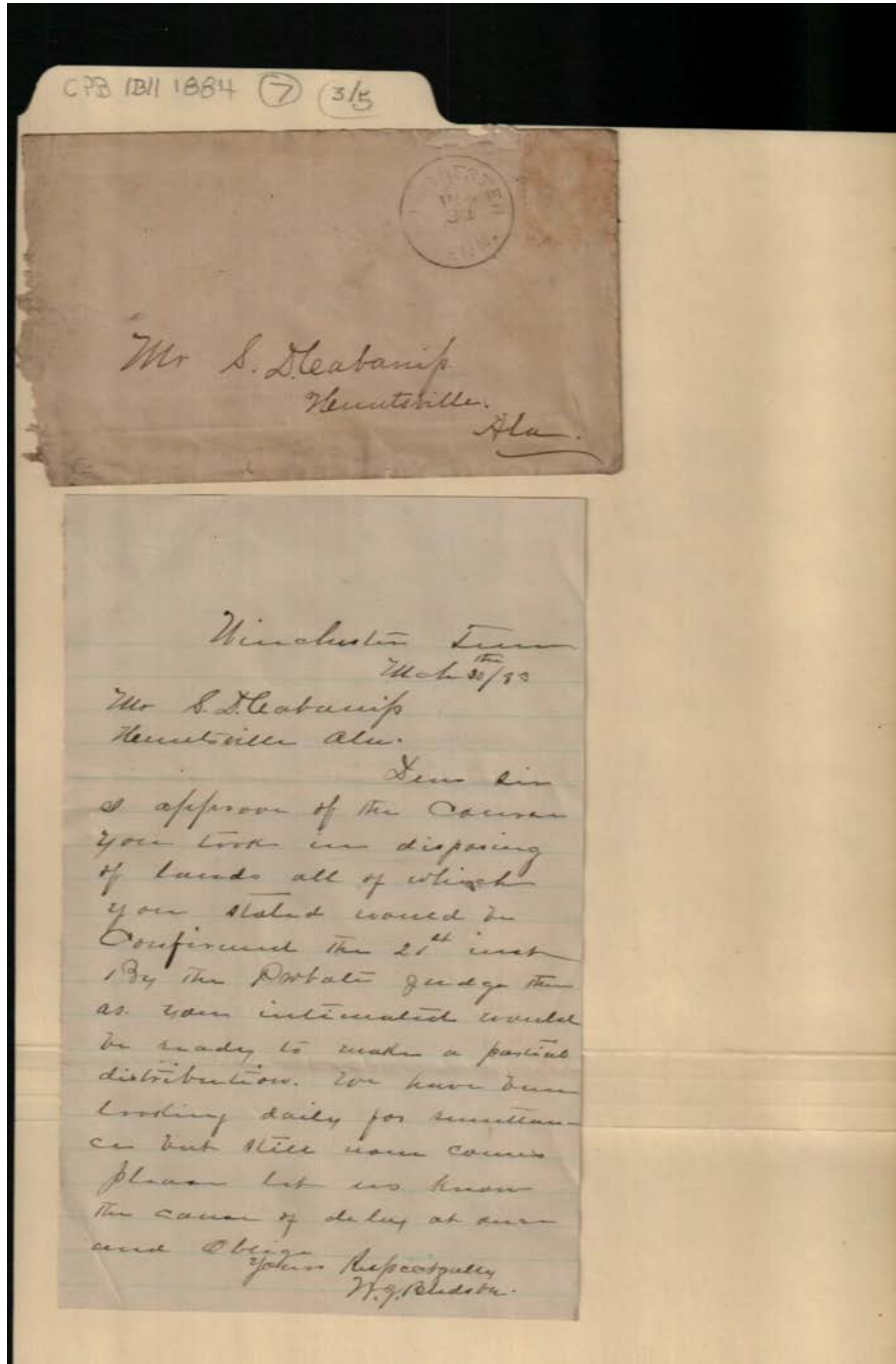 CPB IBII 1884 7 3/5
MAR
31
Mr S. D. Cabaniss
Huntsville.
Ala.
Winchester Tenn
Mch 30th/83
Mr S. D. Cabaniss
Huntsville Ala.
Dear Sir
I approve of the Course
you took in disposing
of lands all of which
you stated would be
Confirmed the 21st inst
By the Probate judge then
as you intimated would
be ready to make a partial
distribution. We have been
looking daily for remittan-
ce but still none comes
please let us know
the cause of delay at once
and Oblige
Yours Respectfully
W. J. Bledsoe.